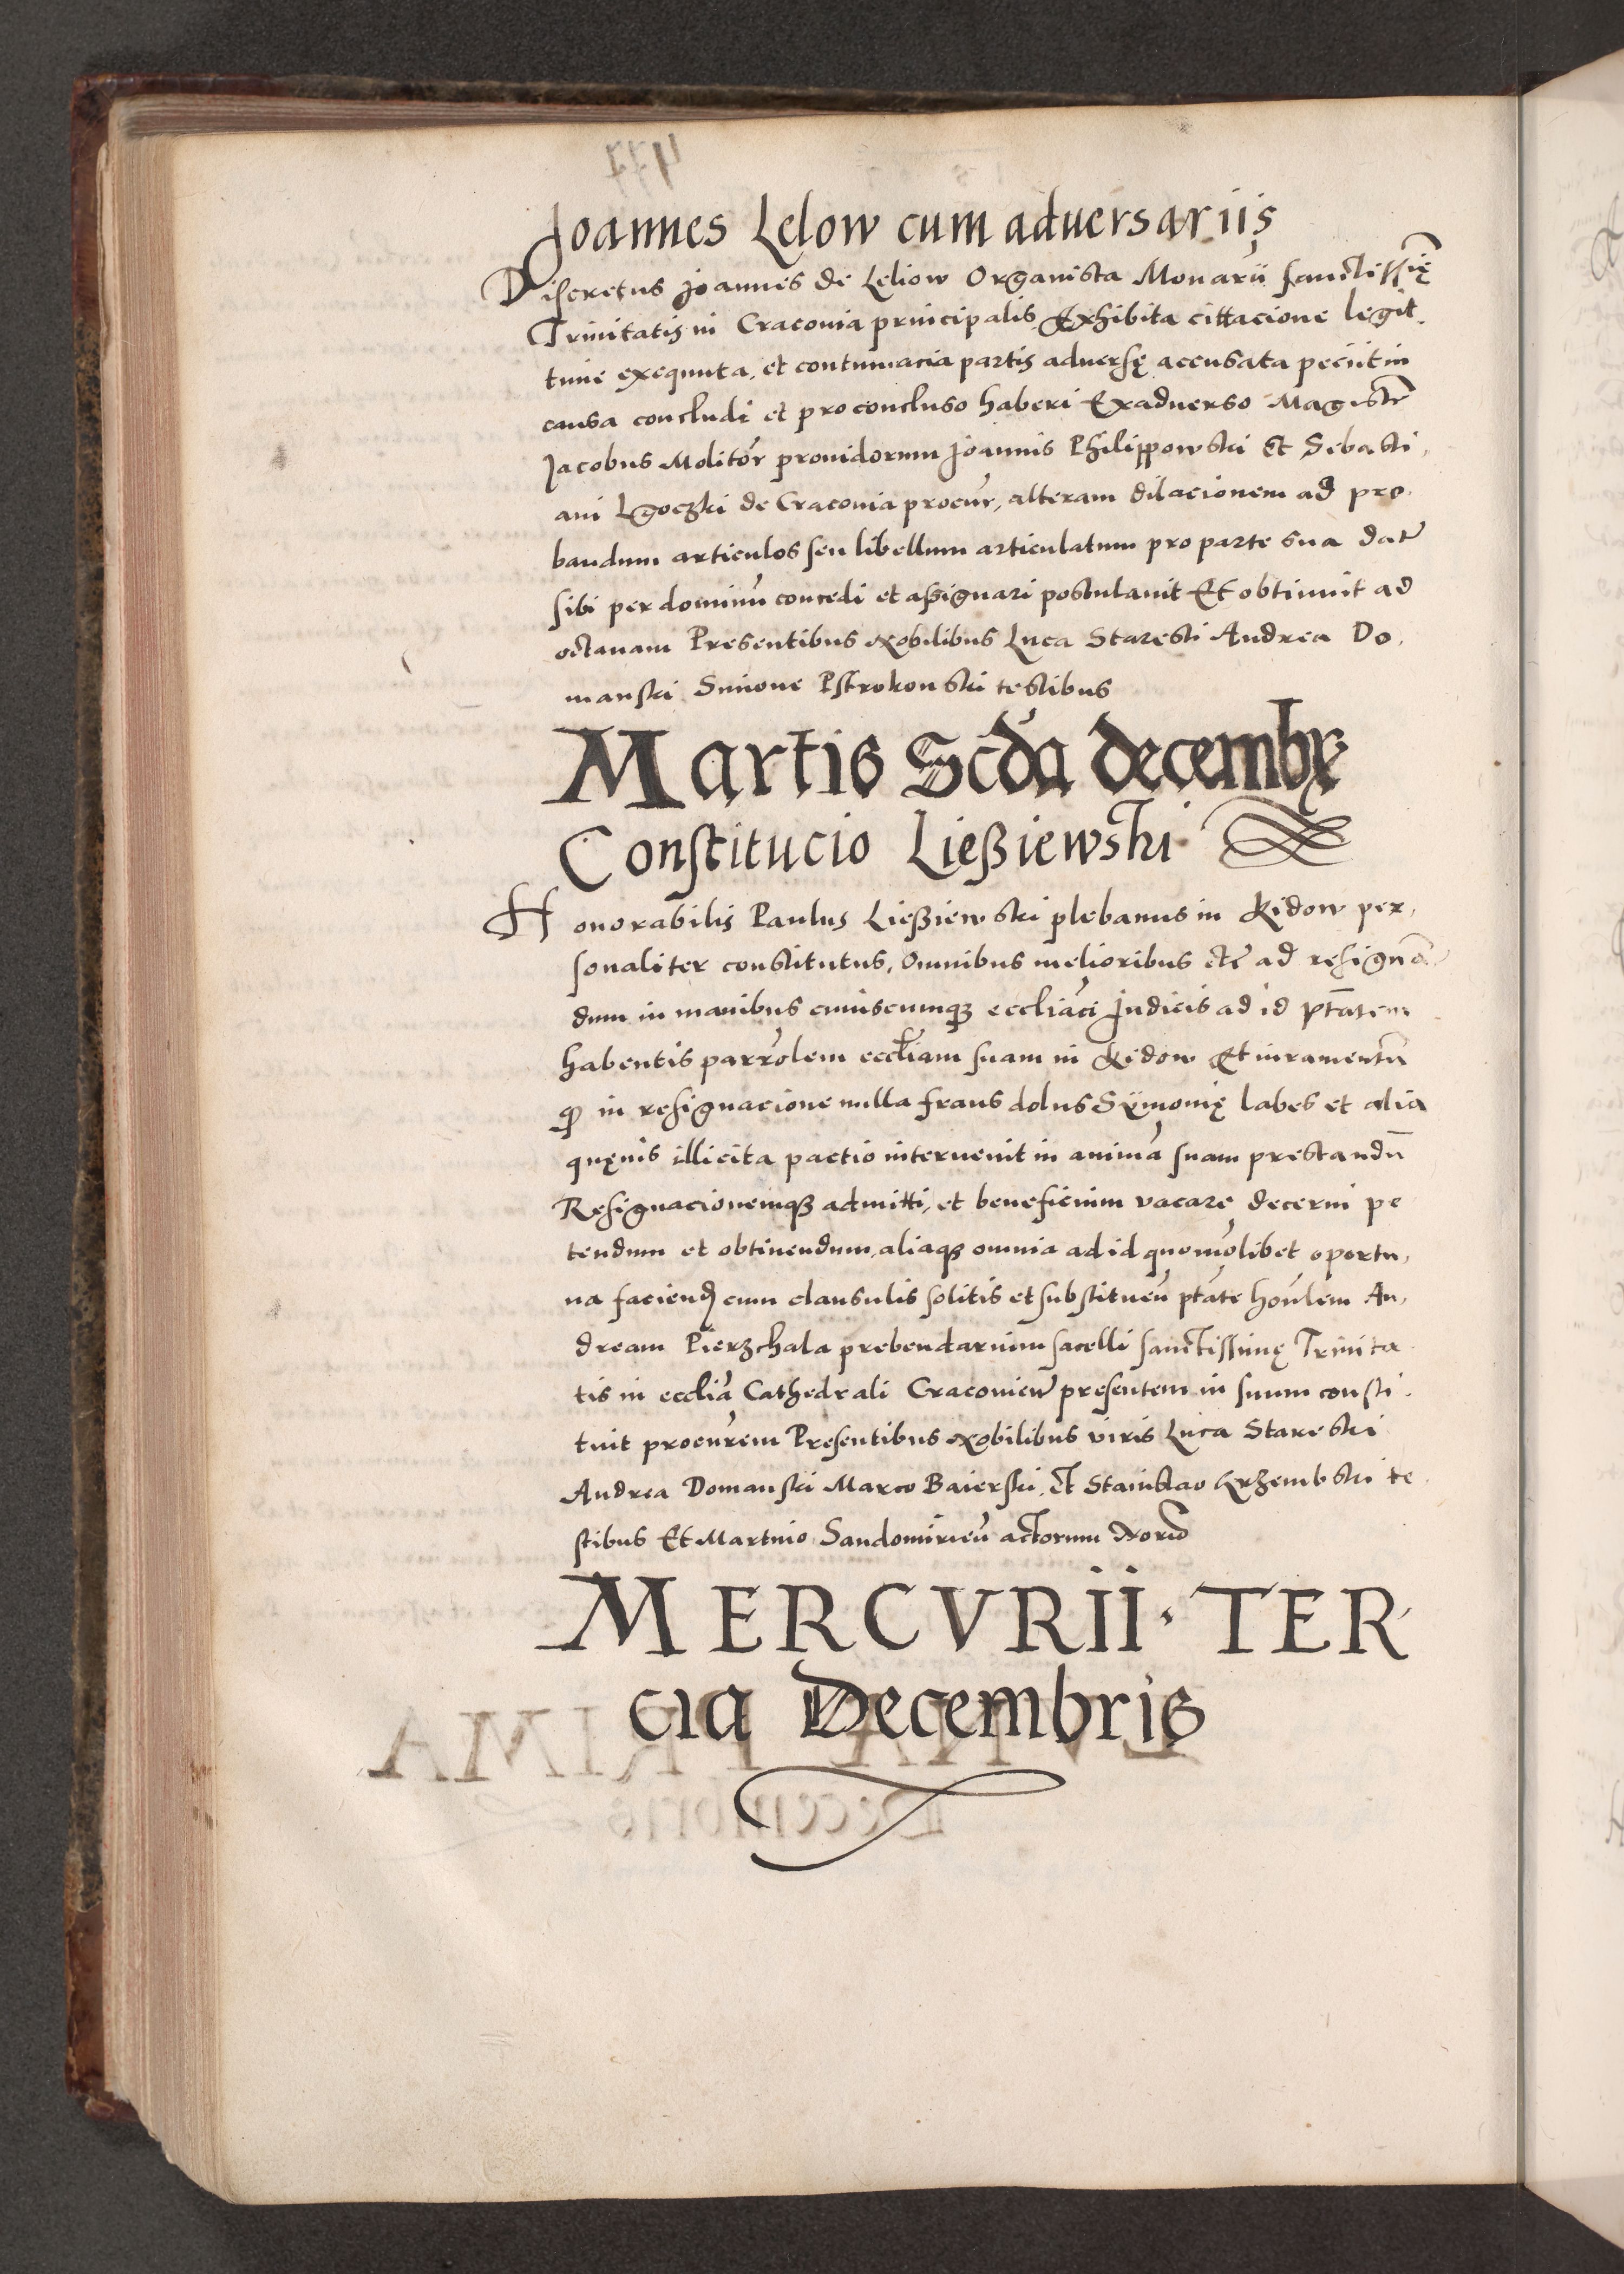 Joannes Lelow cum adversariis
Discretus Joannes de Leliow Organista Monarii sanctissię
Trinitatis in Cracovia principalis Exhibita cittacione legit,
time exequuta, et contumacia partis adversę accusata peciit in
causa concludi et pro concluso haberi Ex adverso Magister
Jacobus Molitor providorum Joannis Philippowski Et Sebasti,
ani Lgoczki de Cracovia procur, alteram dilacionem ad pro,
bandum articulos seu libellum articulatum pro parte sua dat
sibi per dominu concedi et assignari postulavit Et obtinuit ad
octavam Presentibus Nobilibus Luca Stareski Andrea Do,
manski Simone Pstrokonski testibus
Martis Scda decembr
Constitucio Ließiewski
Honorabilis Paulus Ließiewski plebanus in Kidow per,
sonaliter constitutus, Omnibus melioribus etc ad resignan
dum in manibus cuiuscumque eccliaci Judicis ad id ptatem
habentis parrolem eccliam suam in Kidow Et iuramentu
q in resignacione nulla fraus dolus Sÿmonię labes et alia
quęvis illicita pactio intervenit in anima suam prestandu
Resignacionemque admitti, et beneficium vacare decerni pe
tendum et obtinendum, aliaque omnia ad id quomolibet oportu,
na faciend cum clausulis solitis et substituen ptate honlem An,
dream Pierzchala prebendarium sacelli sanctissimę Trinita
tis in ecclia Cathedrali Cracovien presentem in suum consti,
tuit procurem Presentibus Nobilibus viris Luca Stareski
Andrea Domanski Marco Baierski, Et Stanislao Krzembski te,
stibus Et Martino Sandomirien actorum Norio
MERCVRII · TER
cia Decembris